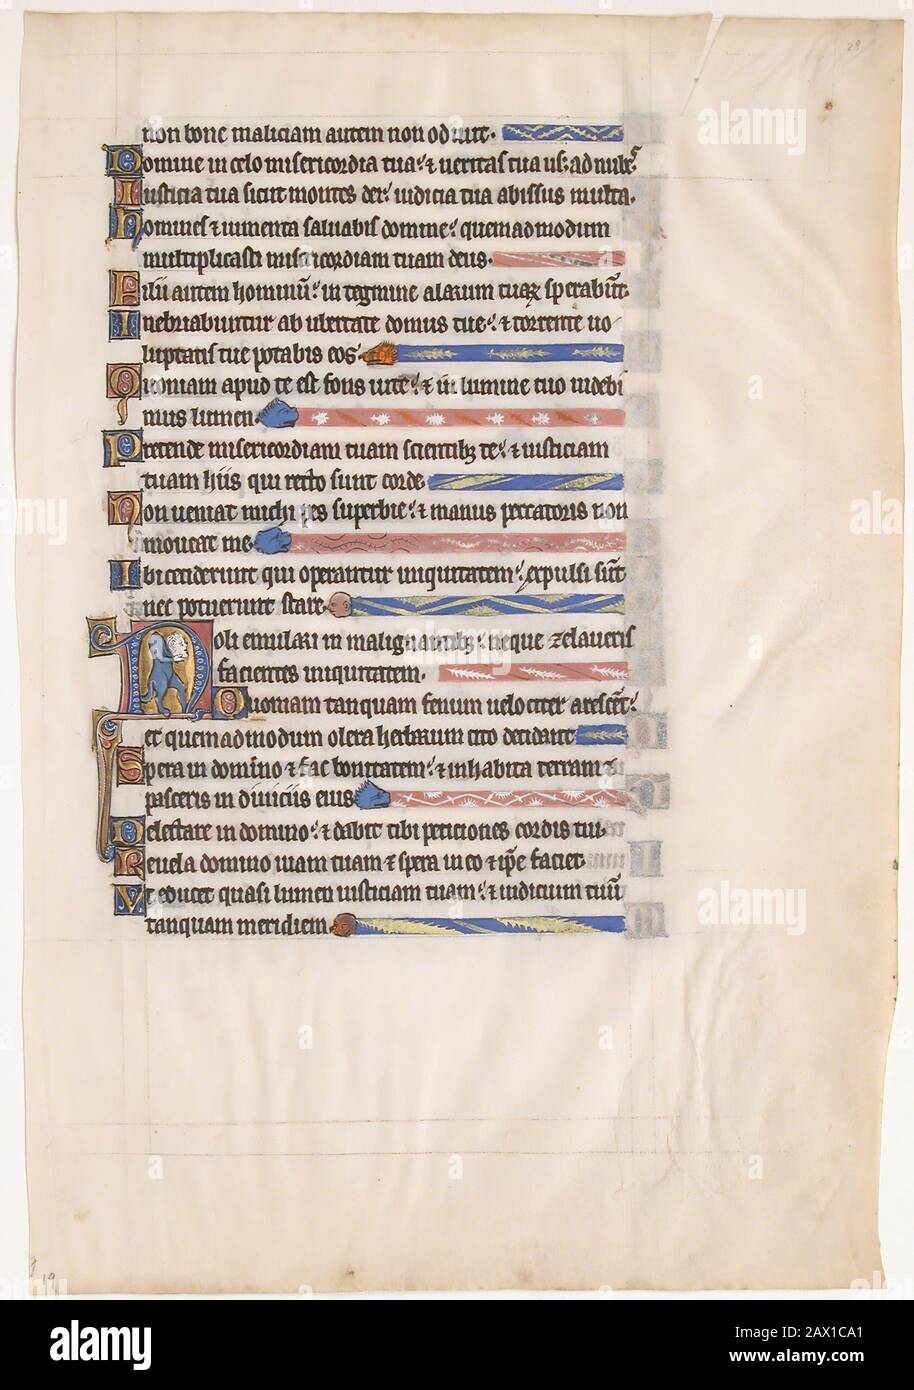 non bone maliciam autem non odiuit.
Domine in celo misericordia tua: & ueritas tua usq; ad nubes
Iusticia tua sicut montes dei: iudicia tua abissus multa.
Homines & iumenta saluabis domine: quemadmodum
multiplicasti misericordiam tuam deus.
Filii autem hominũ: in tegmine alarum tuaꝝ sperabũt.
Inebriabuntur ab ubertate domus tue: & torrente uo
luptatis tue potabis eos.
Quoniam apud te est fons uite: & in lumine tuo uidebi
mus lumen.
Pretende misericordiam tuam scientibꝫ te: & iusticiam
tuam hiis qui recto sunt corde.
Non ueniat michi pes superbie: & manus peccatoris non
moueat me.
Ibi ceciderunt qui operantur iniquitatem: expulsi sũt
nec potuerunt stare.
Noli emulari in malignantibꝫ: neque zelaueris
facientes iniquitatem.
Quoniam tanquam fenum uelociter arescẽt:
et quemadmodum olera herbarum cito decidant
Spera in domino & fac bonitatem: & inhabita terram &
pasceris in diuiciis eius
Delectare in domino: & dabit tibi peticiones cordis tui.
Reuela domino uiam tuam & spera in eo & ip̃e faciet.
Vt educet quasi lumen iusticiam tuam: & iudicium tuũ
tanquam meridiem.
29
19
alamy
Image ID: 2AX1CA1
www.alamy.com